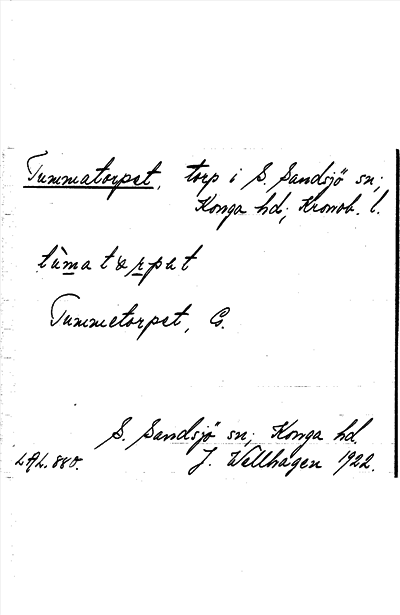 Tummatorpet, torp i S. Sandsjö sn;
Konga hd; Kronob. l.
tùmatorpet
Tummetorpet, G.
S. Sandsjö sn; Konga hd.
LAL. 880. J. Wellhagen 1922.